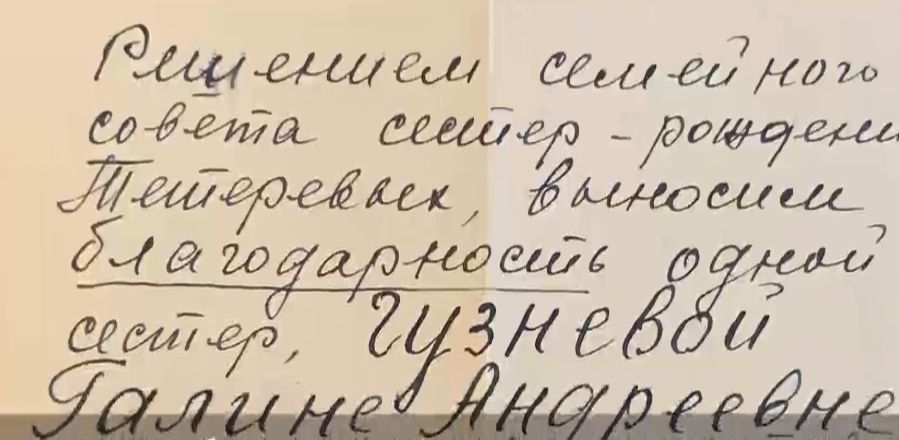 Решением семейного
совета сестер - рождени
Тетеревых, выносим
благодарность одной
сестер, Гузневой
Галине Андреевне